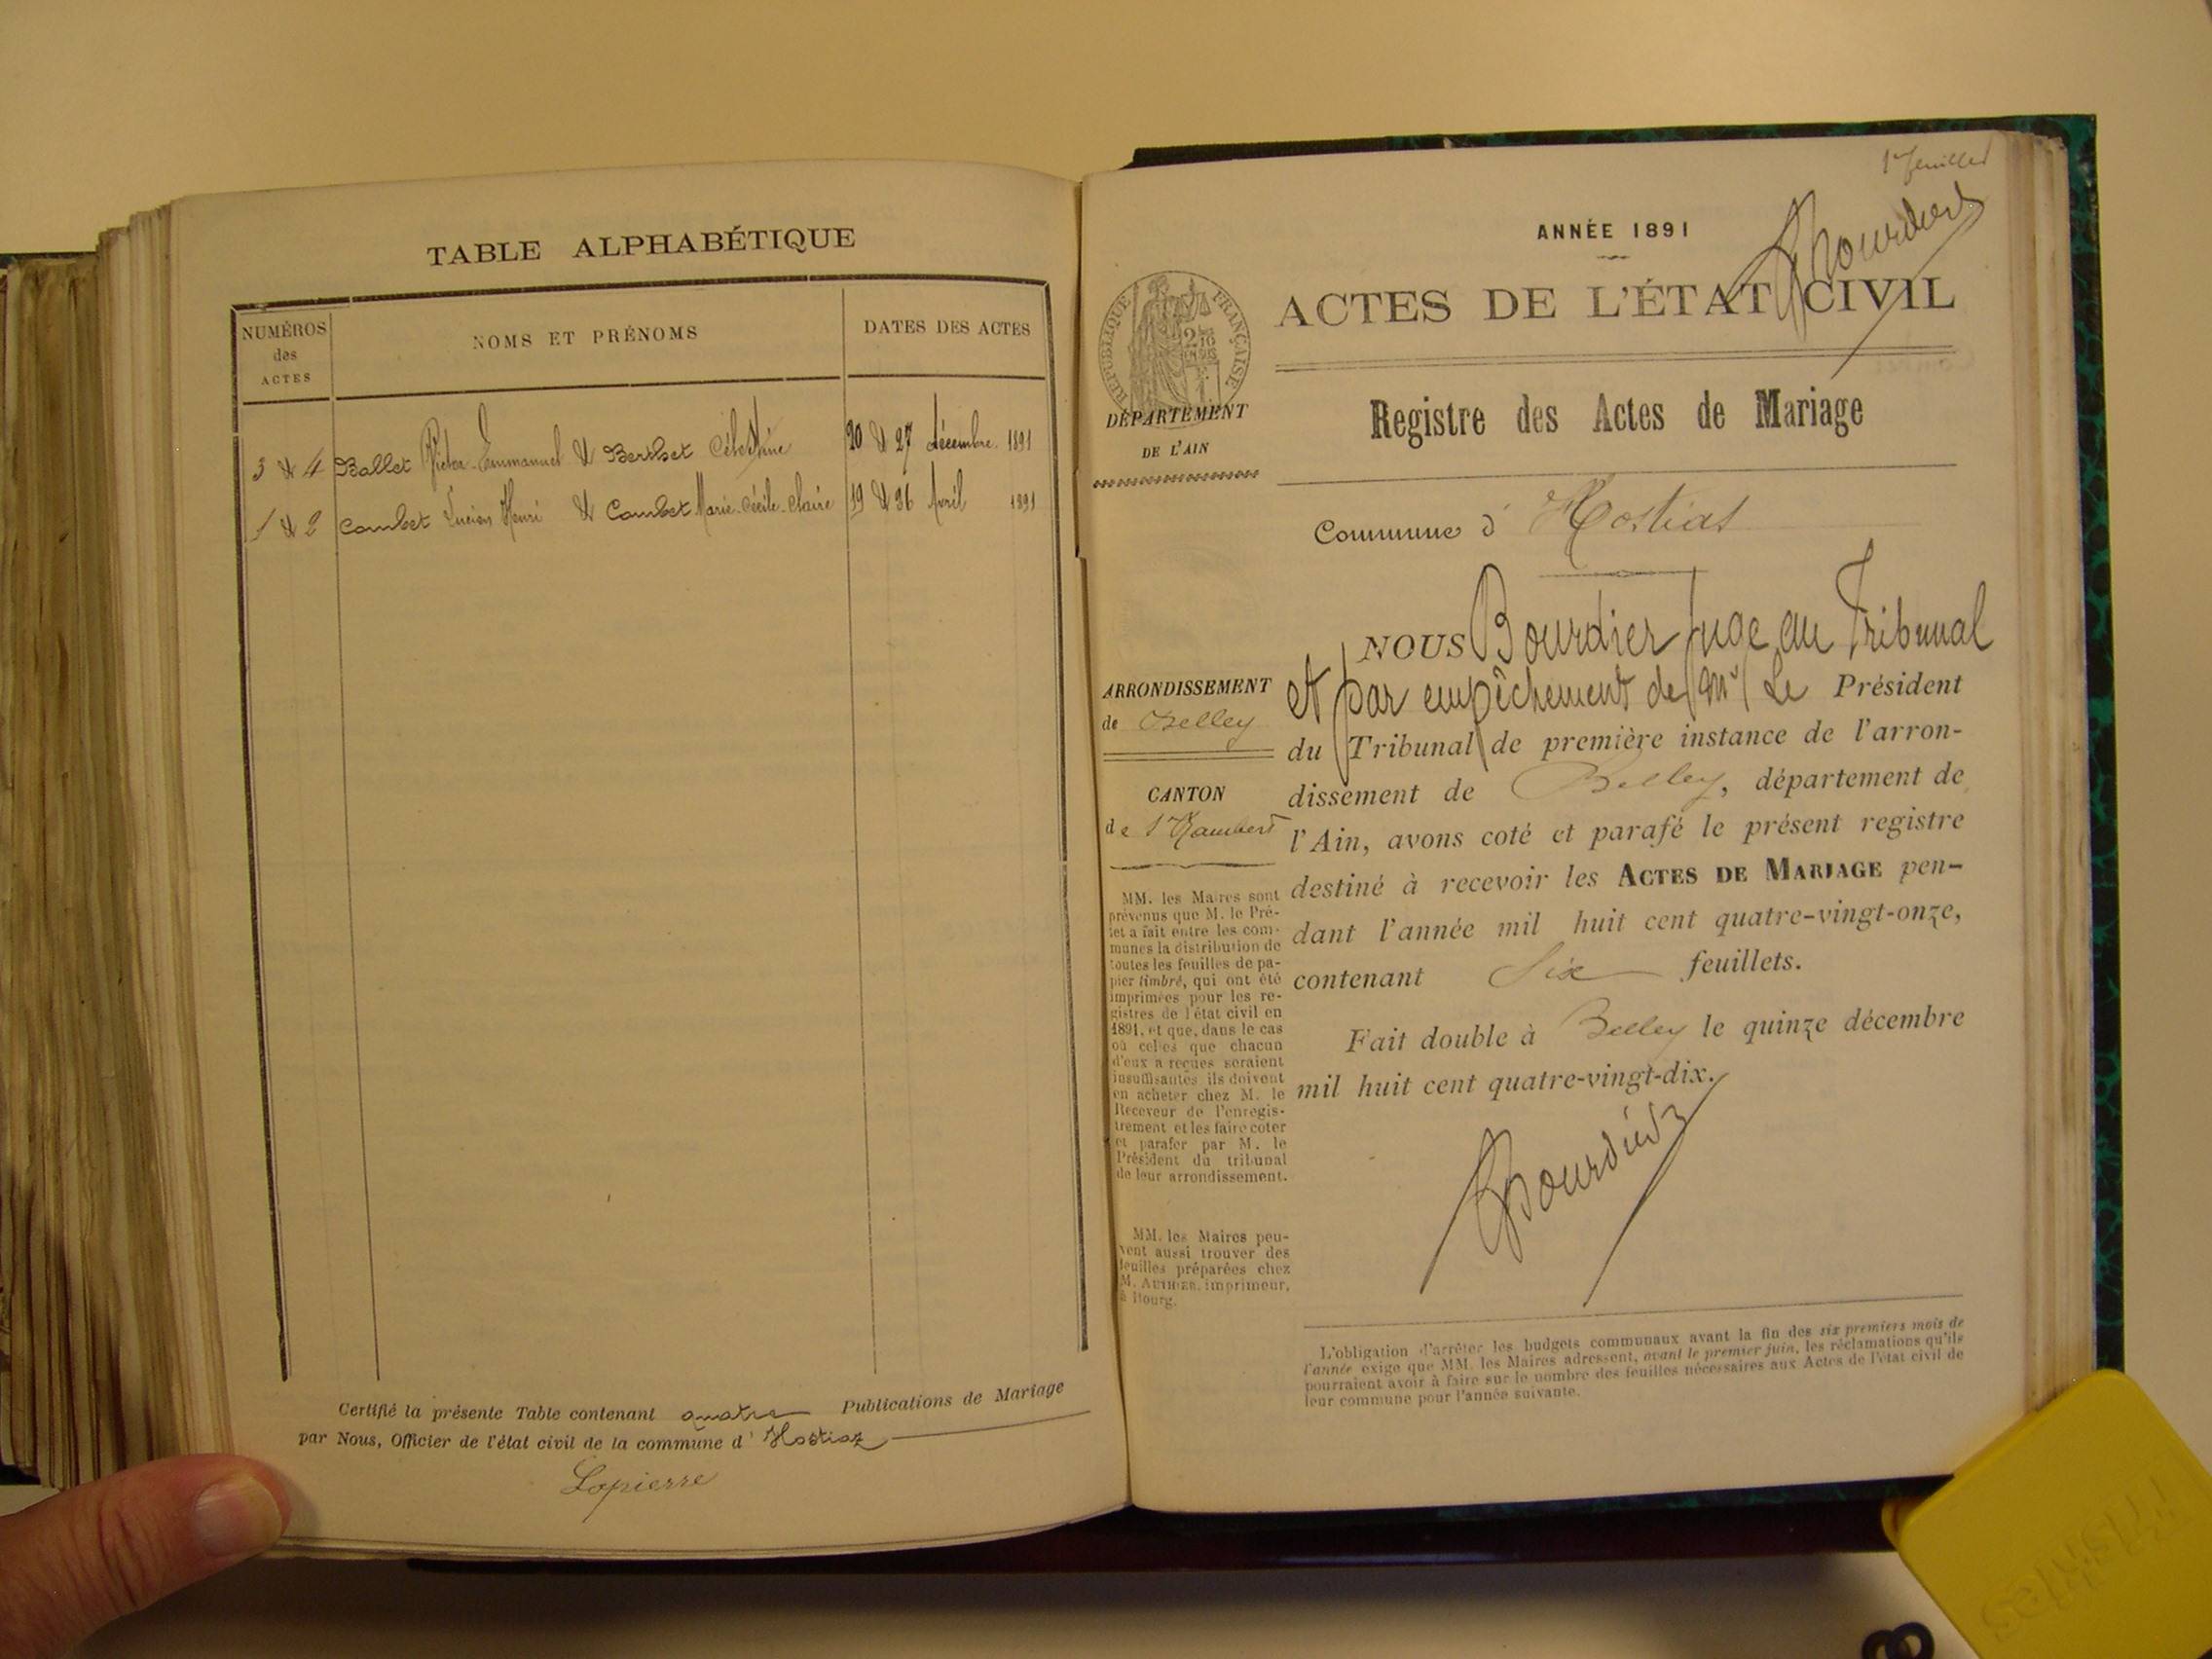 TABLE ALPHABÉTIQUE
NUMÉROS des ACTES
NOMS ET PRÉNOMS
DATES DES ACTES
3 & 4 Ballet Victor Emmanuel & Berthet Célestine 20 & 27 décembre 1891
1 & 2 Combet Lucien Henri & Combet Marie-Cécile-Claire 19 & 26 Avril 1891
Certifié la présente Table contenant quatre Publications de Mariage
par Nous, Officier de l'état civil de la commune d' Hostiaz
Lapierre
1er feuillet
Bourdier
ANNÉE 1891
ACTES DE L'ÉTAT CIVIL
RÉPUBLIQUE FRANÇAISE
DÉPARTEMENT
DE L'AIN
Registre des Actes de Mariage
Commune d' Hostias
ARRONDISSEMENT
de Belley
CANTON
de St Rambert
MM. les Maires sont
prévenus que M. le Pré-
fet a fait entre les com-
munes la distribution de
toutes les feuilles de pa-
pier timbré, qui ont été
imprimées pour les re-
gistres de l'état civil en
1891, et que, dans le cas
où celles que chacun
d'eux a reçues seraient
insuffisantes ils doivent
en acheter chez M. le
Receveur de l'enregis-
trement et les faire coter
et parafer par M. le
Président du tribunal
de leur arrondissement.
MM. les Maires peu-
vent aussi trouver des
feuilles préparées chez
M. AUTHIER, imprimeur,
à Bourg.
NOUS Bourdier Juge au Tribunal
et par empêchement de Mr Le Président
du Tribunal de première instance de l'arron-
dissement de Belley, département de
l'Ain, avons coté et parafé le présent registre
destiné à recevoir les ACTES DE MARIAGE pen-
dant l'année mil huit cent quatre-vingt-onze,
contenant Six feuillets.
Fait double à Belley le quinze décembre
mil huit cent quatre-vingt-dix.
Bourdier
L'obligation d'arrêter les budgets communaux avant la fin des six premiers mois de
l'année exige que MM. les Maires adressent, avant le premier juin, les réclamations qu'ils
pourraient avoir à faire sur le nombre des feuilles nécessaires aux Actes de l'état civil de
leur commune pour l'année suivante.